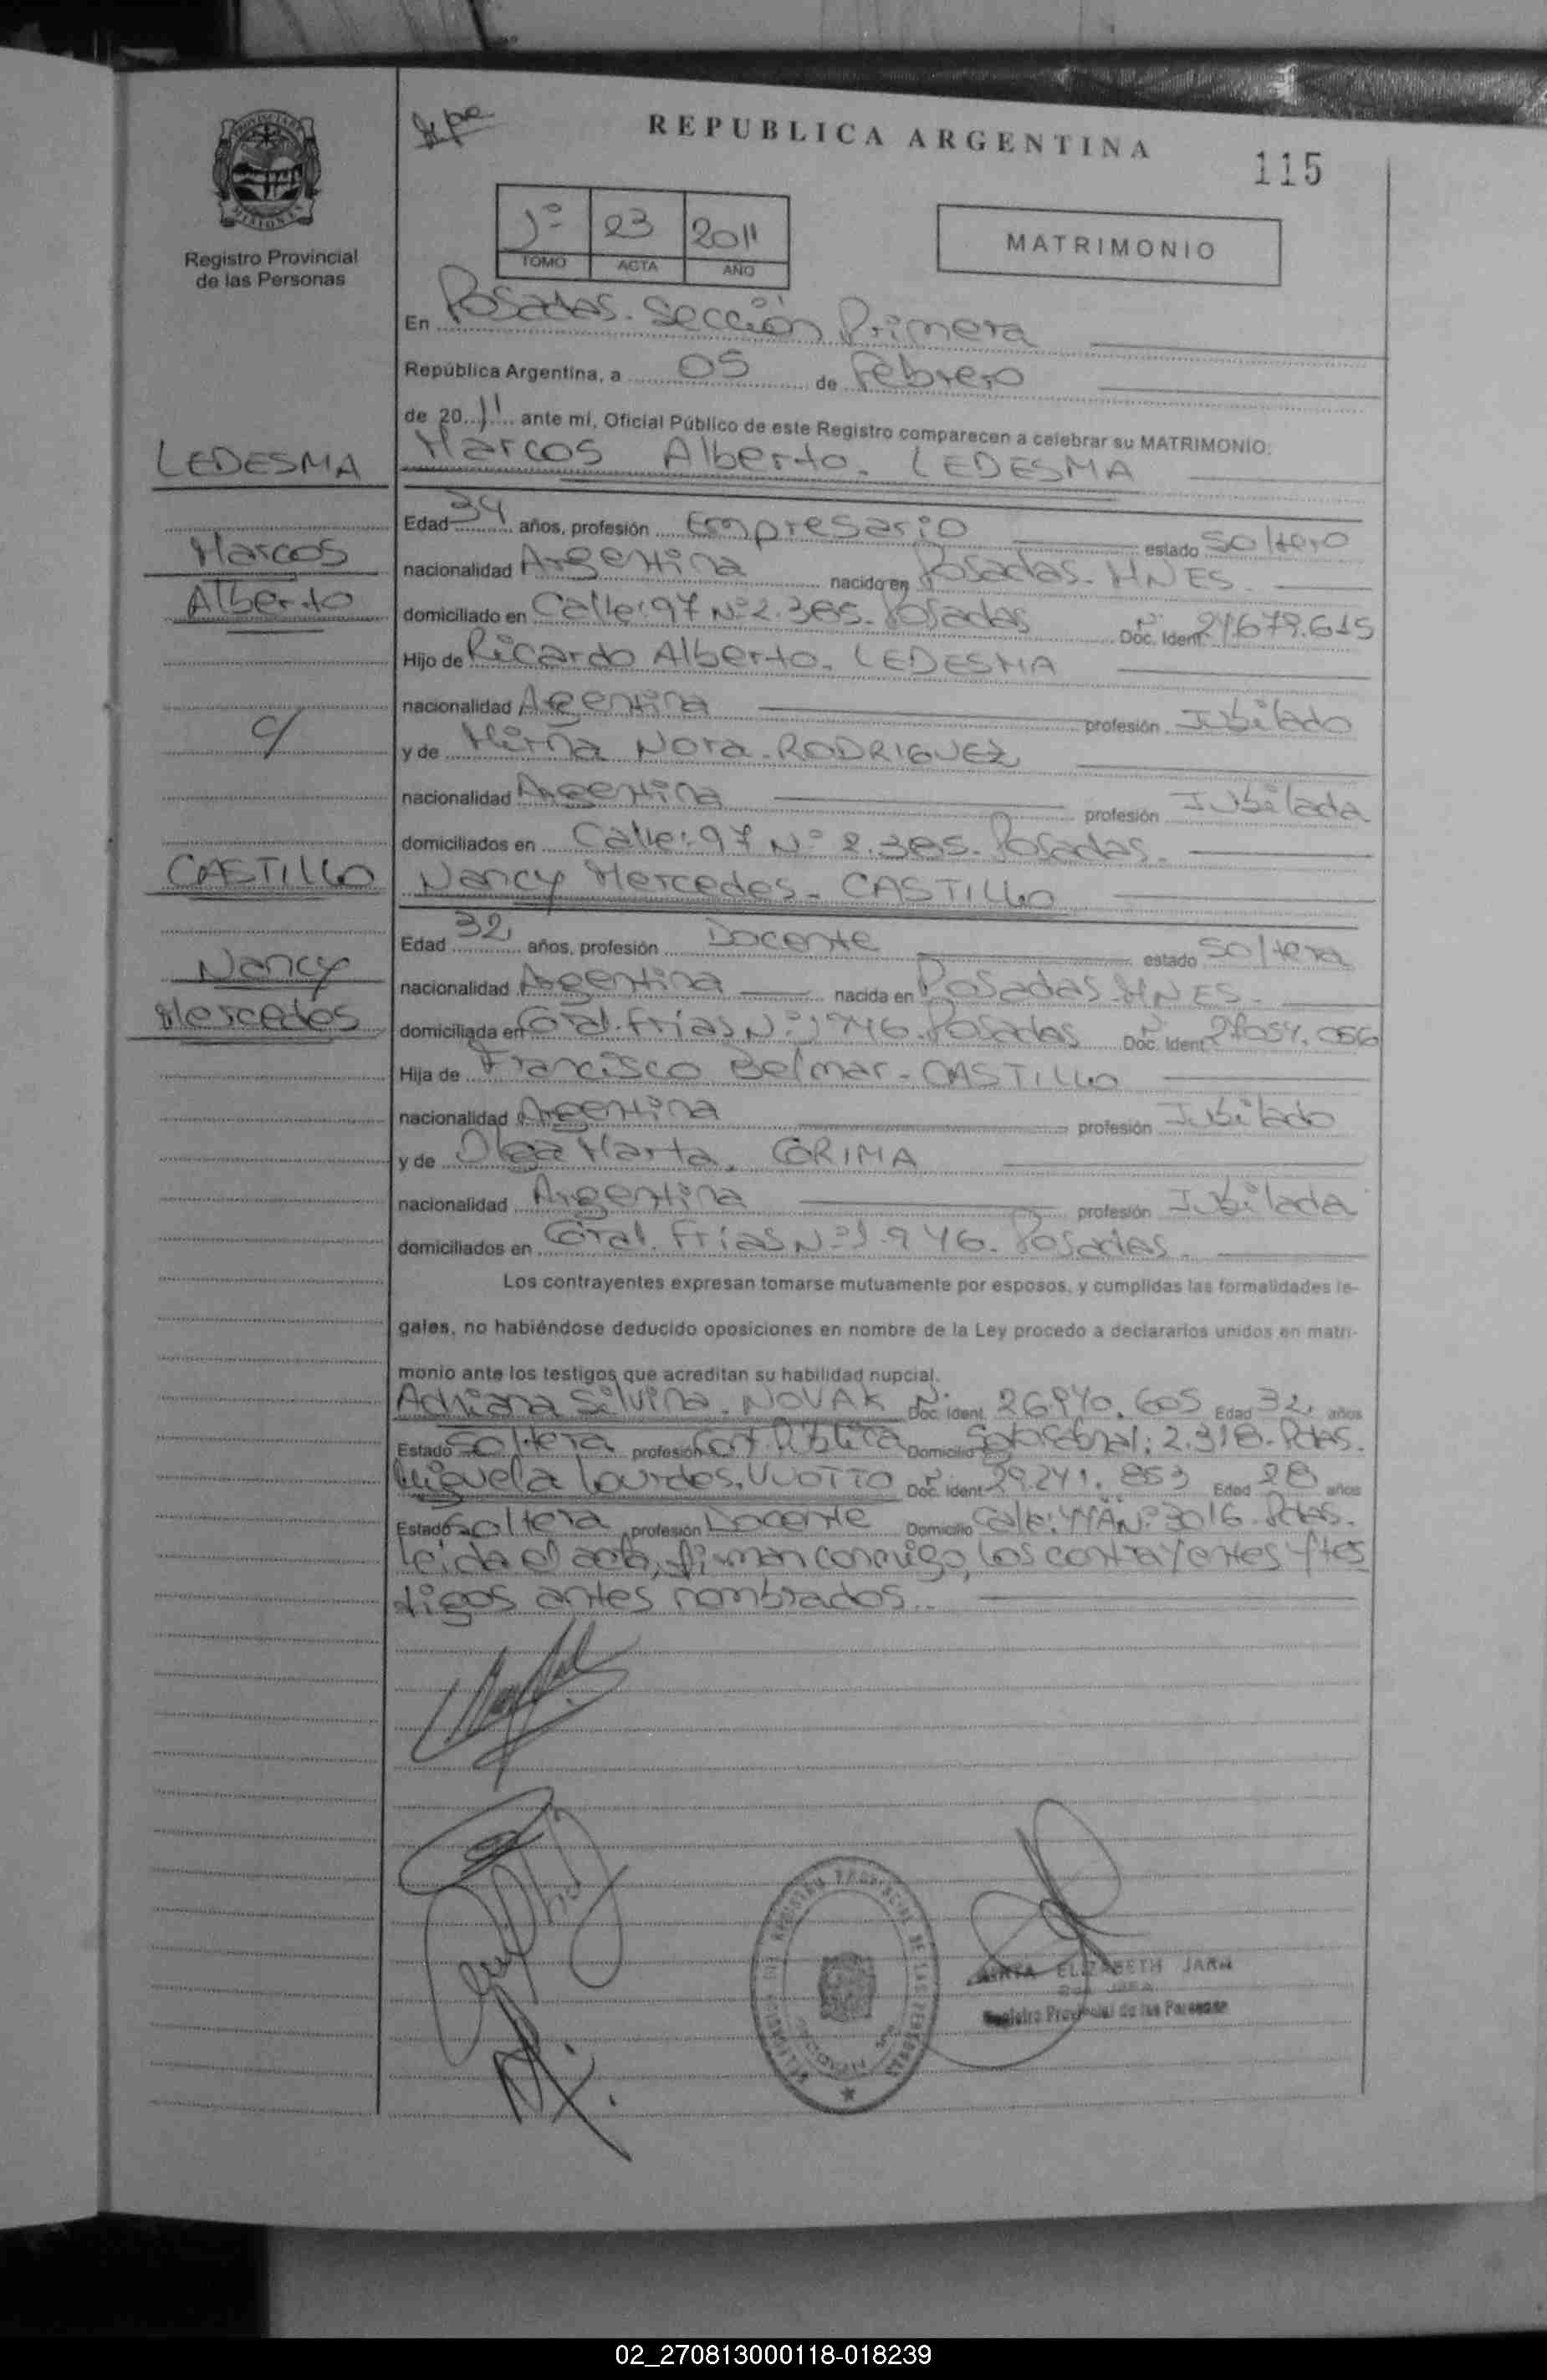 REPUBLICA ARGENTINA
115
PROVINCIA DE
MISIONES
Registro Provincial
de las Personas
1º 23 2011
TOMO ACTA AÑO
MATRIMONIO
En Posadas. Sección Primera
República Argentina, a 05 de Febrero
de 2011 ante mí, Oficial Público de este Registro comparecen a celebrar su MATRIMONIO:
LEDESMA
Marcos Alberto. LEDESMA
Edad 34 años, profesión Empresario estado Soltero
Marcos
nacionalidad Argentina nacido en Posadas. MNES.
Alberto
domiciliado en Calle: 97 Nº 2.385. Posadas Nº Doc. Ident. .679.615
Hijo de Ricardo Alberto. LEDESMA
nacionalidad Argentina profesión Jubilado
c/
y de Mirna Nora. RODRIGUEZ
nacionalidad Argentina profesión Jubilada
domiciliados en Calle: 97 Nº 2.385. Posadas.
CASTILLO
Nancy Mercedes. CASTILLO
Edad 32 años, profesión Docente estado Soltera
Nancy
nacionalidad Argentina nacida en Posadas MNES.
Mercedes
domiciliada en Gral. Frías Nº 1946. Posadas Nº Doc. Ident. .056
Hija de Francisco Belmar. CASTILLO
nacionalidad Argentina profesión Jubilado
y de Olga Marta. CORIMA
nacionalidad Argentina profesión Jubilada
domiciliados en Gral. Frías Nº 1.946. Posadas.
Los contrayentes expresan tomarse mutuamente por esposos, y cumplidas las formalidades le-
gales, no habiéndose deducido oposiciones en nombre de la Ley procedo a declararlos unidos en matri-
monio ante los testigos que acreditan su habilidad nupcial.
Adriana Silvina. NOVAK Nº Doc. Ident. 26.940.605 Edad 32 años
Estado Soltera profesión Cont. Pública Domicilio 2.318. Pdas.
Miguela Lourdes. VUOTTO Nº Doc. Ident. 29.241.853 Edad 28 años
Estado Soltera profesión Docente Domicilio Calle: Nº 3016. Pdas.
Leída el acta, firman conmigo, los contrayentes y tes
tigos antes nombrados.
ELIZABETH JARA
Registro Provincial de las Personas
02_270813000118-018239